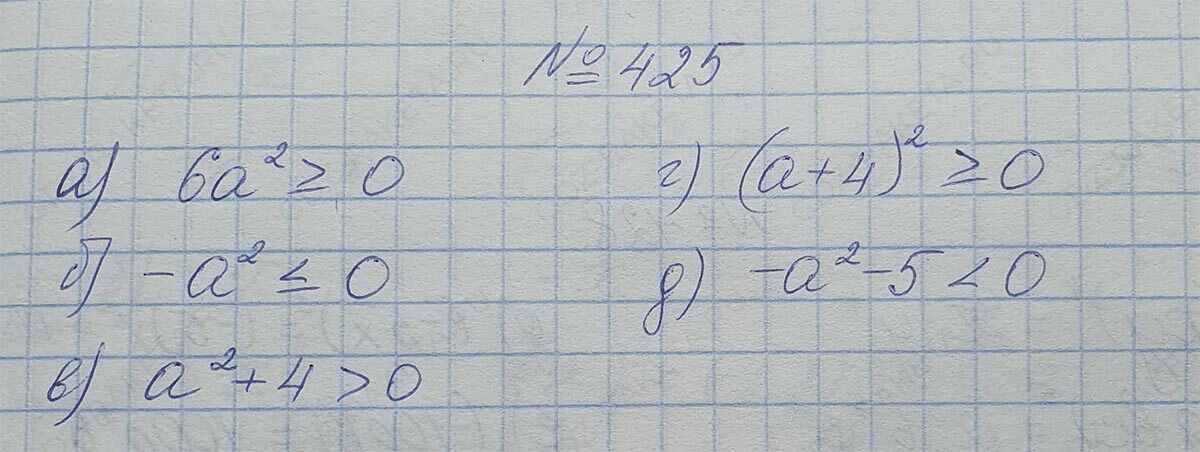 № 425
а) 6a² ≥ 0
б) -a² ≤ 0
в) a² + 4 > 0
г) (a+4)² ≥ 0
д) -a² - 5 < 0